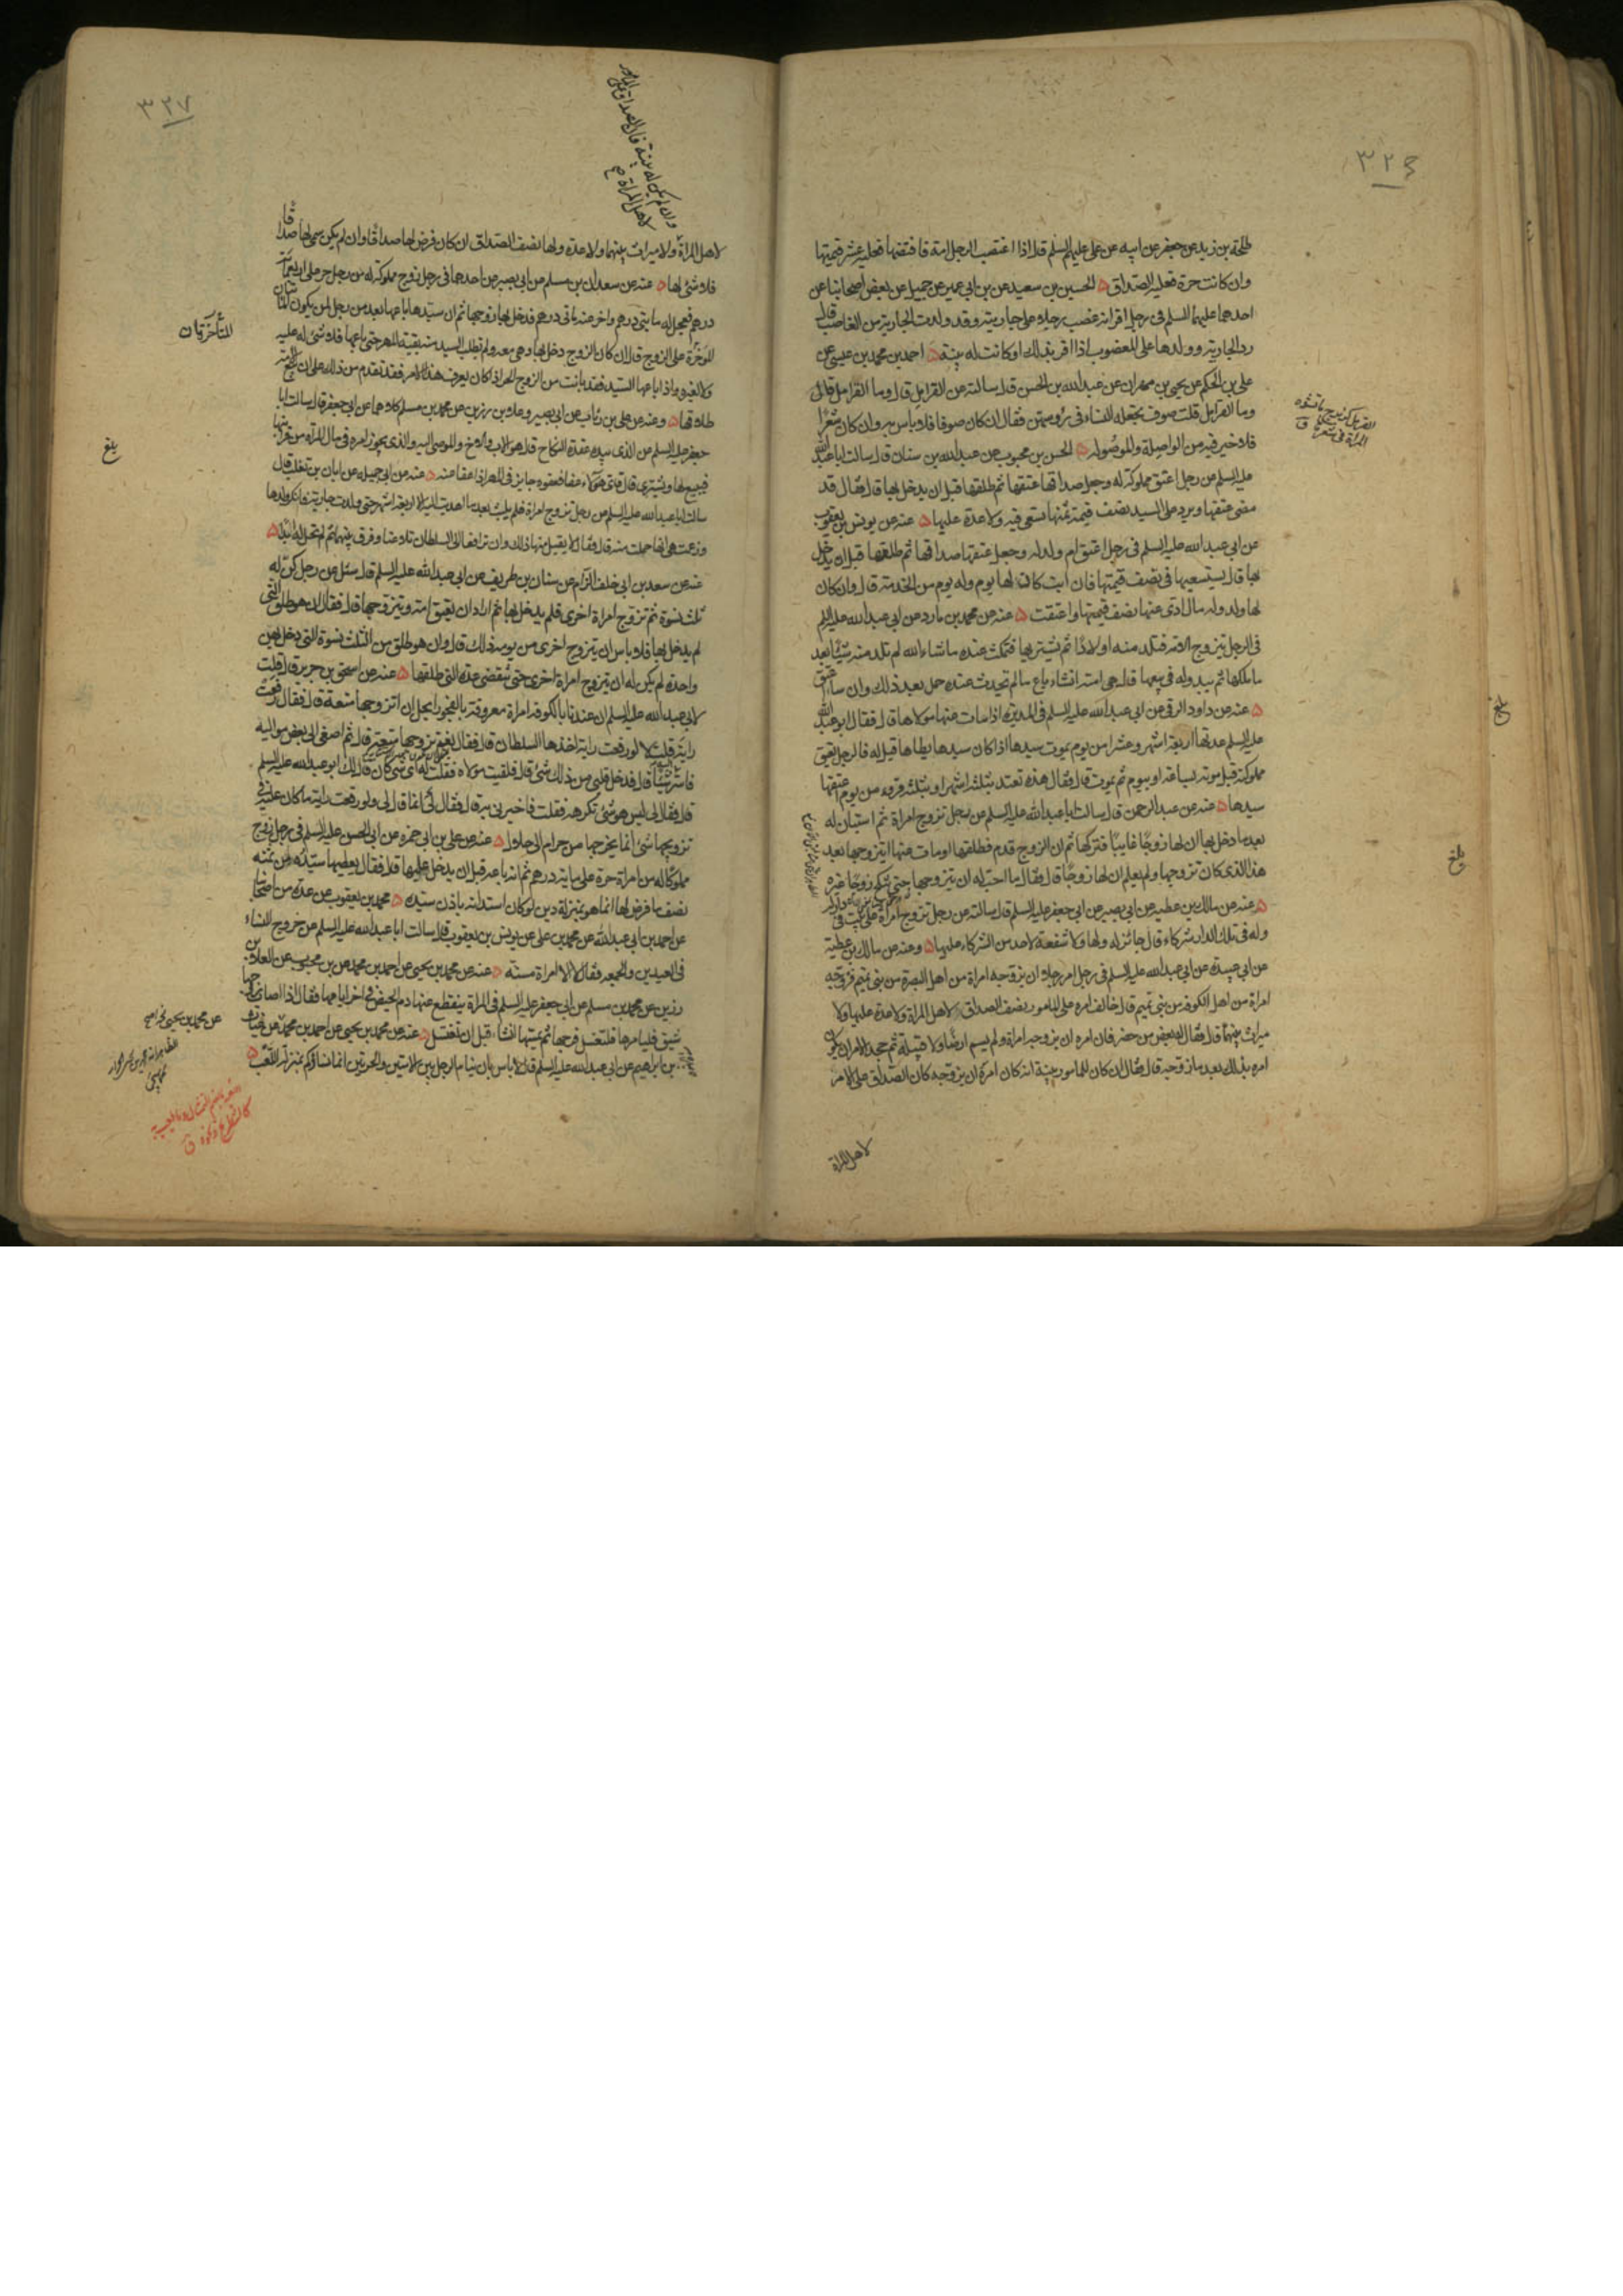 ٣٢٦
طلحة بن زيد عن جعفر عن ابيه عن علي عليهم السلم قال اذا اغتصب الرجل امة فافتضها فعليه عشر قيمتها
وان كانت حرة فعليه الصداق ۵ الحسين بن سعيد عن بن ابي عمير عن جميل عن بعض اصحابنا عن
احدهما عليهما السلم في رجل اقر انه غصب رجلا على جاريته وقد ولدت الجارية من الغاصب قال
رد الجارية وولدها على المغصوب اذا اقر بذلك او كانت له بينة ۵ احمد بن محمد بن عيسى عن
علي بن الحكم عن يحيى بن مهران عن عبدالله بن الحسن قال سالته عن القرامل قال وما القرامل قال
وما القرامل قلت صوف يجعله النساء في رؤسهن فقال ان كان صوفا فلا باس به وان كان شعرا
فلا خير فيه من الواصلة والموصولة ۵ الحسن بن محبوب عن عبدالله بن سنان قال سالت ابا عبدالله
عليه السلم عن رجل اعتق مملوكة له وجعل صداقها عتقها ثم طلقها قبل ان يدخل بها قال فقال قد
مضى عتقها ويرد على السيد نصف قيمة ثمنها تسعى فيه ولا عدة عليها ۵ عنه عن يونس بن يعقوب
عن ابي عبد الله عليه السلم في رجل اعتق ام ولد له وجعل عتقها صداقها ثم طلقها قبل ان يدخل
بها قال يستسعيها في نصف قيمتها فان ابت كان لها يوم وله يوم من الخدمة قال وان كان
لها ولد وله مال ادى عنها نصف قيمتها واعتقت ۵ عنه عن محمد بن مارد عن ابي عبدالله عليه السلم
في الرجل يتزوج الامة فتلد منه اولادا ثم يشتريها فتمكث عنده ما شاء الله لم تلد منه شيئا بعد
ما ملكها ثم يبدو له في بيعها قال هي امته ان شاء باع ما لم تحدث عنده حمل بعد ذلك وان شاء اعتق
۵ عنه عن داود الرقي عن ابي عبد الله عليه السلم في المدبرة اذا مات عنها مولاها قال فقال ابو عبدالله
عليه السلم عدتها اربعة اشهر وعشرا من يوم يموت سيدها اذا كان سيدها يطاها قيل له فالرجل يعتق
مملوكته قبل موته بساعة او بيوم ثم يموت قال فقال هذه تعتد بثلثة اشهر او بثلثة قروء من يوم اعتقها
سيدها ۵ عنه عن عبدالرحمن قال سالت ابا عبدالله عليه السلم عن رجل تزوج امراة ثم استبان له
بعد ما دخل بها ان لها زوجا غايبا فتركها ثم ان الزوج قدم فطلقها او مات عنها ايتزوجها بعد
هذا الذي كان تزوجها ولم يعلم ان لها زوجا قال فقال ما احب له ان يتزوجها حتى تنكح زوجا غيره
۵ عنه عن مالك بن عطية عن ابي بصير عن ابي جعفر عليه السلم قال سالته عن رجل تزوج امراة على بيت في
وله في تلك الدار شركاء قال جائز له ولها ولا شفعة لاحد من الشركاء عليها ۵ وعنه عن مالك بن عطية
عن ابي عبيدة عن ابي عبدالله عليه السلم في رجل امر رجلا ان يزوجه امراة من اهل البصرة من بني تميم فزوجه
امراة من اهل الكوفة من بني تميم قال خالف امره على المامور نصف الصداق لاهل المراة ولا عدة عليها ولا
ميراث بينهما قال فقال له بعض من حضر فان امره ان يزوجه امراة ولم يسم ارضا ولا قبيلة ثم جحد الامر ان يكون
امره بذلك بعد ما زوجه قال فقال ان كان للمامور بينة انه كان امره ان يزوجه كان الصداق على الامر
لاهل المراة
بلغ
بلغ
٣٢٧
وان لم يكن له بينة فان الصداق على المامور
لاهل المراة
لاهل المراة ولا ميراث بينهما ولا عدة ولها نصف الصداق ان كان فرض لها صداقا وان لم يكن سمى لها صداقا
فلا شئ لها ۵ عنه عن سعدان بن مسلم عن ابي بصير عن احدهما في رجل زوج مملوكة له من رجل حر على اربعمائة
درهم فعجل له مايتي درهم واخر عنه مايتي درهم فدخل بها زوجها ثم ان سيدها باعها بعد من رجل لمن يكون المايتان
المؤخرة على الزوج قال ان كان الزوج دخل بها وهي معه ولم يطلب السيد منه بقية المهر حتى باعها فلا شئ له عليه
ولا لغيره واذا باعها السيد فقد بانت من الزوج الحر اذا كان يعرف هذا الامر فقد تقدم من ذلك على ان بيع الامة
طلاقها ۵ وعنه عن علي بن رئاب عن ابي بصير وعلاء بن رزين عن محمد بن مسلم كلاهما عن ابي جعفر قال سالت ابا
جعفر عليه السلم عن الذي بيده عقدة النكاح قال هو الاب والاخ والموصى اليه والذي يجوز امره في مال المراة من قرابتها
فيبيع لها ويشتري قال فاي هؤلاء عفا فعفوه جايز في المهر اذا عفا عنه ۵ عنه عن ابي جميلة عن ابان بن تغلب قال
سالت ابا عبدالله عليه السلم عن رجل تزوج امراة فلم يلبث بعد ما اهديت اليه الا اربعة اشهر حتى ولدت جارية فانكر ولدها
وزعمت هي انها حملت منه قال فقال لا يقبل منها ذلك وان ترافعا الى السلطان تلاعنا وفرق بينهما ثم لم تحل له ابدا ۵
عنه عن سعد بن ابي خلف الزام عن سنان بن طريف عن ابي عبد الله عليه السلم قال سئل عن رجل كن له
ثلث نسوة ثم تزوج امراة اخرى فلم يدخل بها ثم اراد ان يعتق امته ويتزوجها قال فقال ان هو طلق التي
لم يدخل بها فلا باس ان يتزوج اخرى من يومه ذلك قال وان هو طلق من الثلث نسوة التي دخل بهن
واحدة لم يكن له ان يتزوج امراة اخرى حتى تنقضي عدة التي طلقها ۵ عنه عن اسحق بن جرير قال قلت
لابي عبدالله عليه السلم ان عندنا بالكوفة امراة معروفة بالفجور ايحل ان اتزوجها متعة قال فقال رفعت
راية قلت لا لو رفعت راية اخذها السلطان قال فقال نعم تزوجها متعة قال ثم اصغى الى بعض مواليه
فاسر اليه شيئا قال فدخل قلبي من ذلك شئ قال فلقيت مولاه فقلت له اي شئ قال لك ابو عبدالله عليه السلم
قال فقال لي ليس هو شئ تكرهه فقلت فاخبرني به قال فقال لي انما قال لي ولو رفعت راية ما كان عليه في
تزويجها شئ انما يخرجها من حرام الى حلال ۵ عنه عن علي بن ابي حمزة عن ابي الحسن عليه السلم في رجل زوج
مملوكا له من امراة حرة على ماية درهم ثم انه باعه قبل ان يدخل عليها قال فقال يعطيها سيده من ثمنه
نصف ما فرض لها انما هو بمنزلة دين لو كان استدانه باذن سيده ۵ محمد بن يعقوب عن عدة من اصحابنا
عن احمد بن ابي عبدالله عن محمد بن علي عن يونس بن يعقوب قال سالت ابا عبدالله عليه السلم عن خروج النساء
في العيدين والجمعة فقال لا الا امراة مسنة ۵ عنه عن محمد بن يحيى عن احمد بن محمد عن بن محبوب عن العلاء بن
رزين عن محمد بن مسلم عن ابي جعفر عليه السلم في المراة ينقطع عنها دم الحيض في اخر ايامها فقال اذا اصاب زوجها
شبق فليامرها فلتغسل فرجها ثم يمسها ان شاء قبل ان تغتسل ۵ عنه عن محمد بن يحيى عن احمد بن محمد عن غياث
بن ابراهيم عن ابي عبد الله عليه السلم قال لا باس بان ينام الرجل بين الامتين والحرتين انما نساؤكم بمنزلة اللعب ۵
المتأخرتان
بلغ
عن محمد بن يحيى